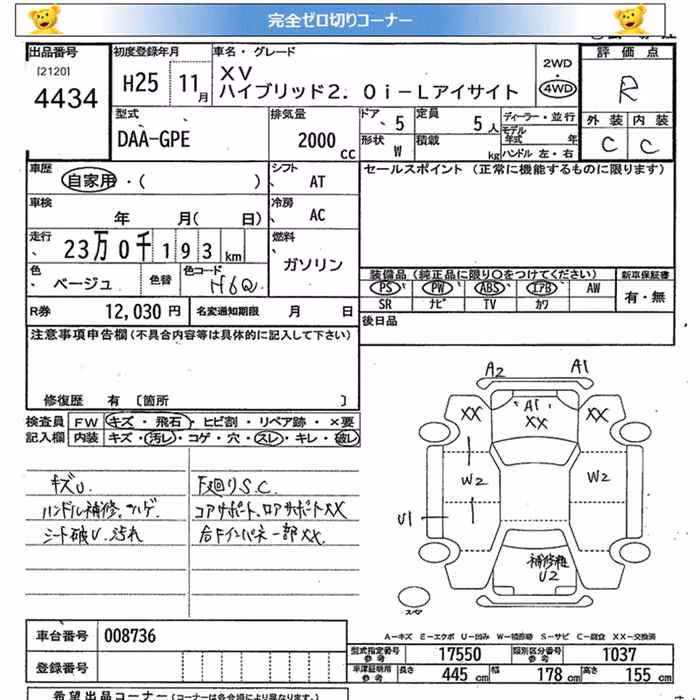 完全ゼロ切りコーナー
出品番号
[2120]
4434
初度登録年月
H25 11月
車名・グレード
XV
ハイブリッド2.0i-Lアイサイト
2WD
4WD
評価点
R
外装 内装
C C
型式
DAA-GPE
排気量
2000
CC
ドア
5
定員
5人
形状
W
積載
kg
ディーラー・並行
モデル年式 年
ハンドル 左・右
車歴
自家用・( )
シフト
AT
セールスポイント (正常に機能するものに限ります)
車検
年 月( 日)
冷房
AC
走行
23万0千193km
燃料
ガソリン
色
ベージュ
色替
色コード
H6Q
装備品(純正品に限り○をつけてください)
新車保証書
PS PW ABS エアB AW
SR ナビ TV カワ
有・無
R券 12,030円
名変通知期限 月 日
後日品
注意事項申告欄(不具合内容等は具体的に記入して下さい)
修復歴 有 [箇所 ]
検査員
記入欄
FW キズ・飛石・ヒビ割・リペア跡・×要
内装 キズ・汚レ・コゲ・穴・スレ・キレ・破レ
キズU.
ハンドル補修.ハゲ
シート破レ.汚れ
下廻りS.C.
コアサポート.ロアサポートXX
右Fインパネ一部XX.
A2 A1
XX A1 XX XX
W2 W2
U1
補修種
U2
A-キズ E-エクボ U-凹み W-補修跡 S-サビ C-腐食 XX-交換済
車台番号 008736
登録番号
型式指定番号
参考
17550
類別区分番号
参考
1037
車庫証明用
参考
長さ 445 cm 幅 178 cm 高さ 155 cm
希望出品コーナー(コーナーは各会場により異なります)